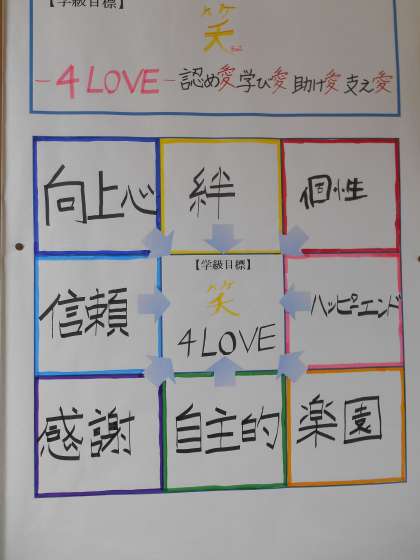 【学級目標】
笑
-4 LOVE- 認め愛 学び愛 助け愛 支え愛
向上心
絆
個性
信頼
【学級目標】
笑
4 LOVE
ハッピーエンド
感謝
自主的
楽園